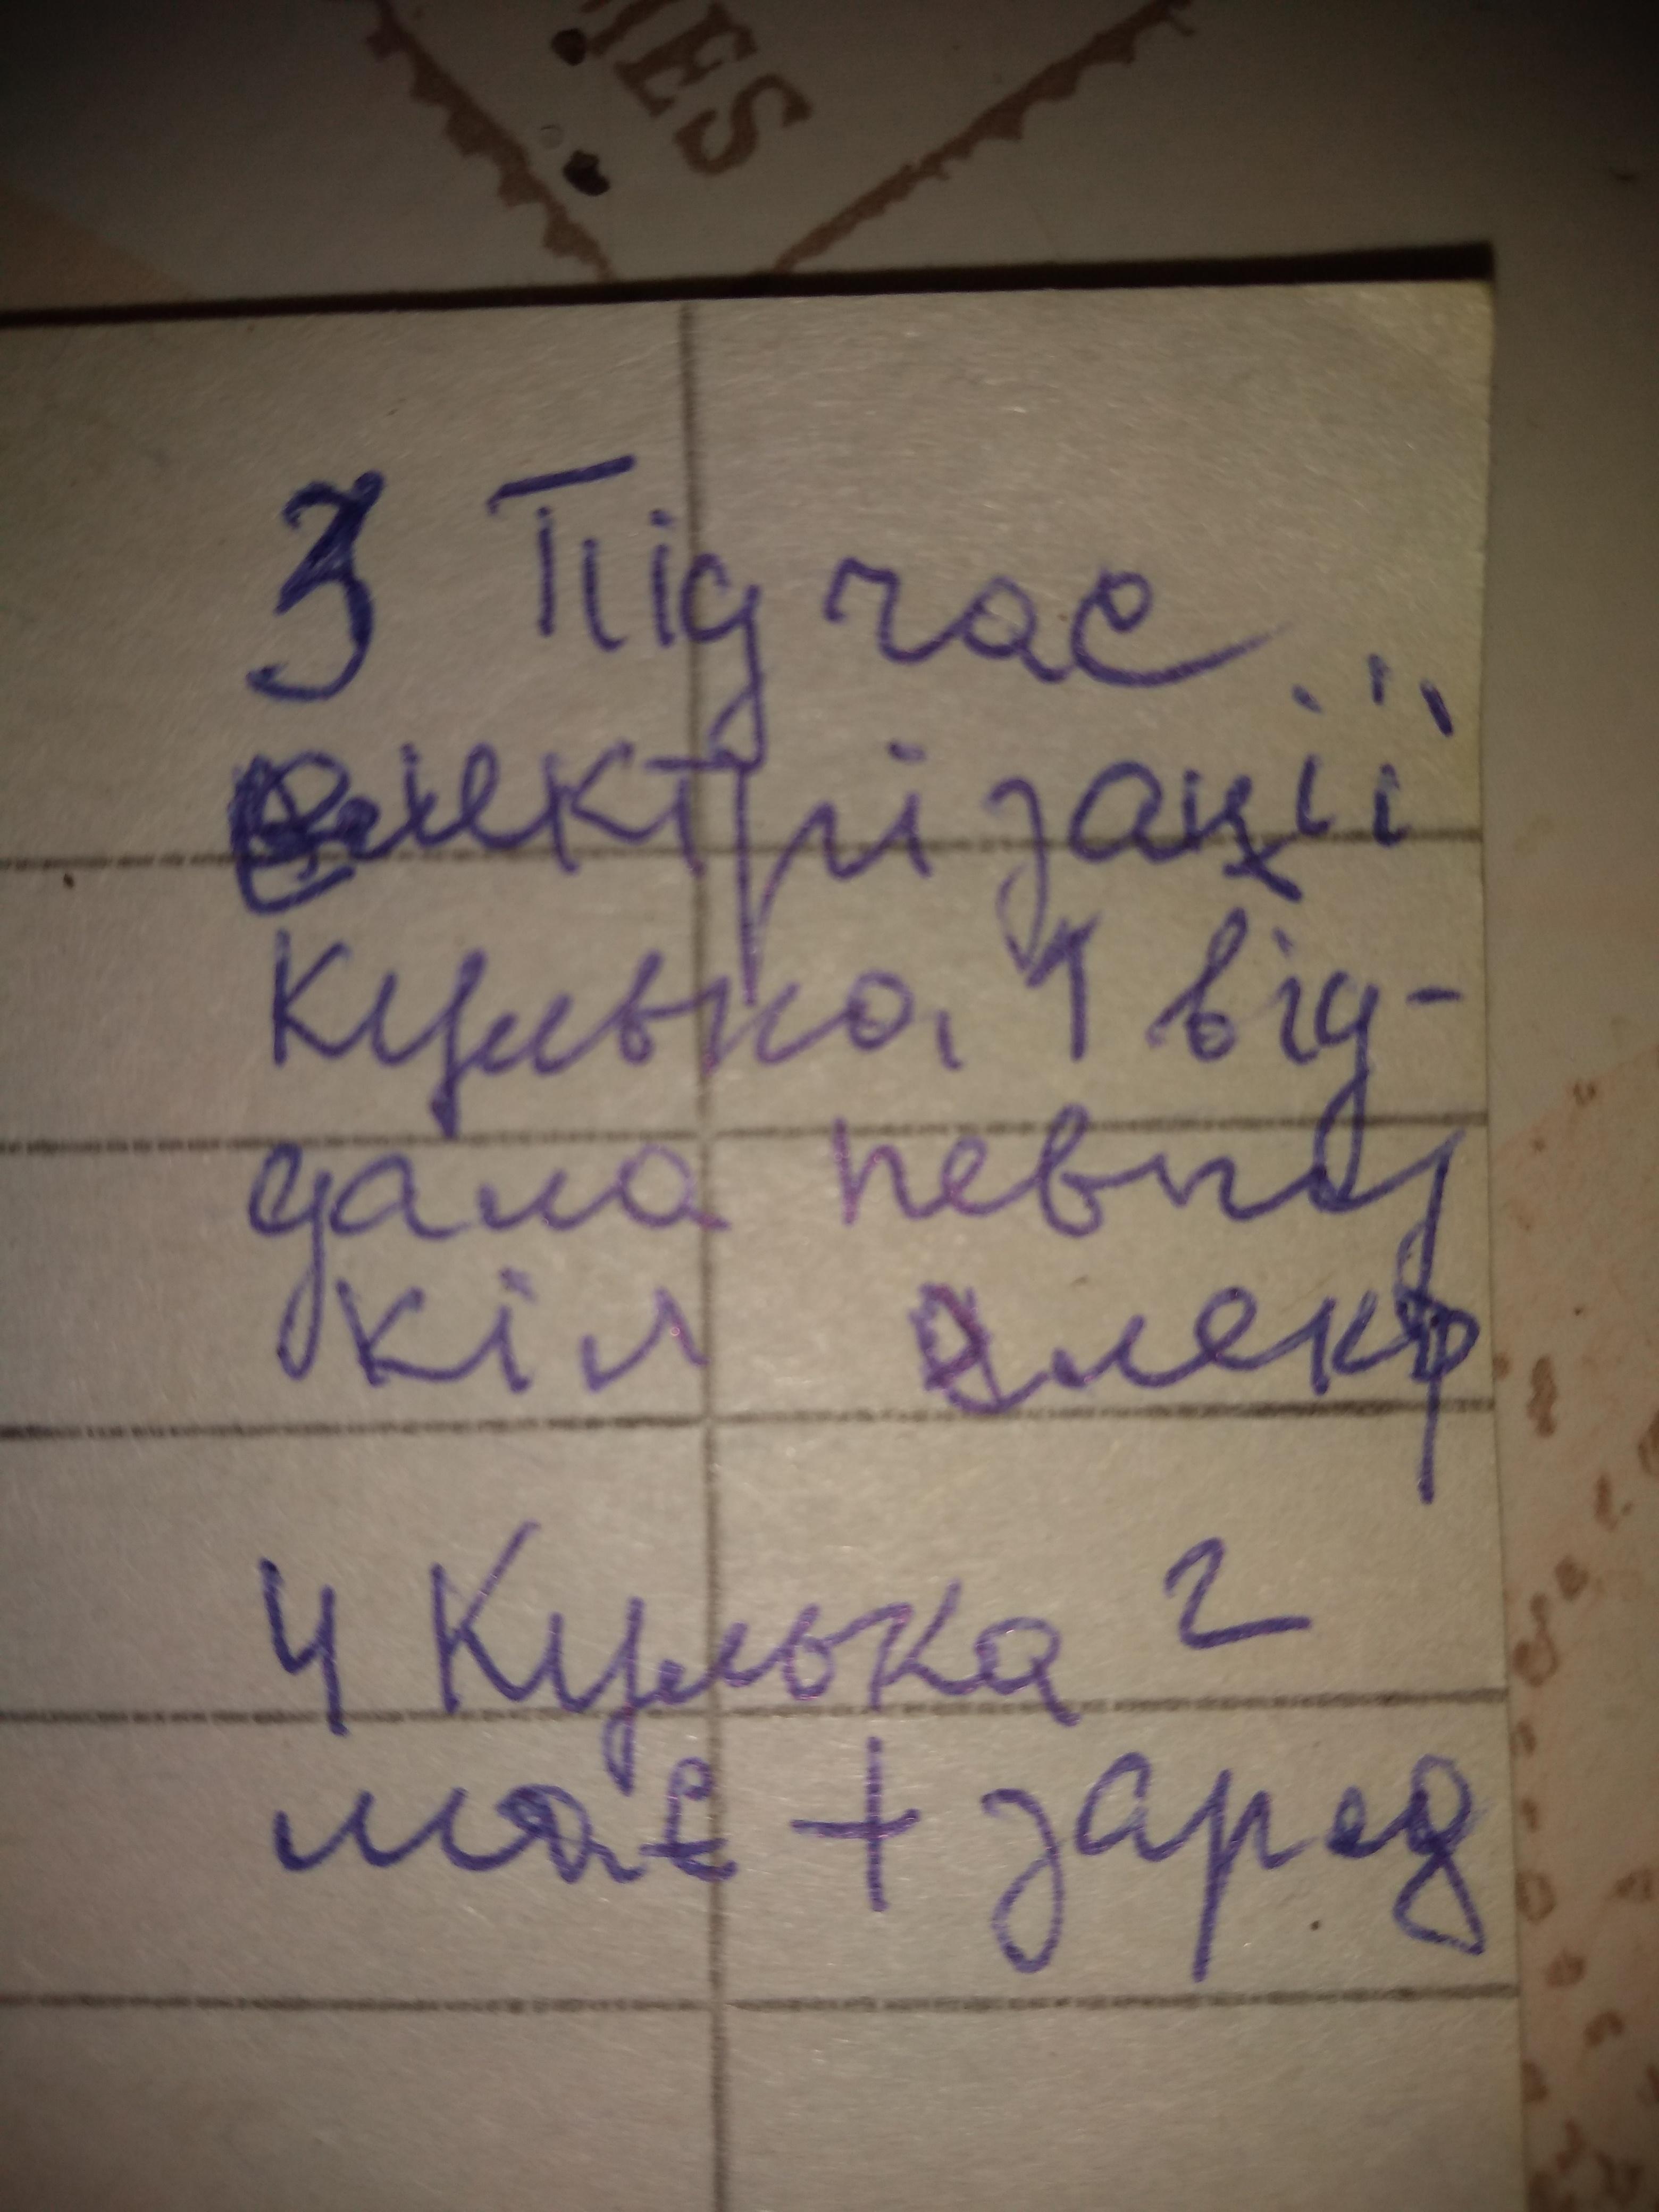 IES
3 Під час
електрізації
Кулька 1 від-
дала певну
кіл елект
4 Кулька 2
має + заряд